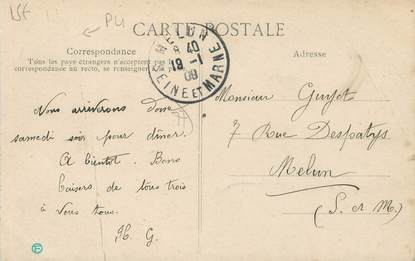 CARTE POSTALE
Correspondance
Tous les pays étrangers n'acceptent pas la
correspondance au recto, se renseigner à la
Nous arriverons donc
samedi soir pour dîner.
A bientôt. Bons
baisers de tous trois
à vous tous.
H. G.
MELUN
8 40
19 -1
09
SEINE ET MARNE
Adresse
Monsieur Guyot
7 Rue Despatys
Melun
(S. et M.)